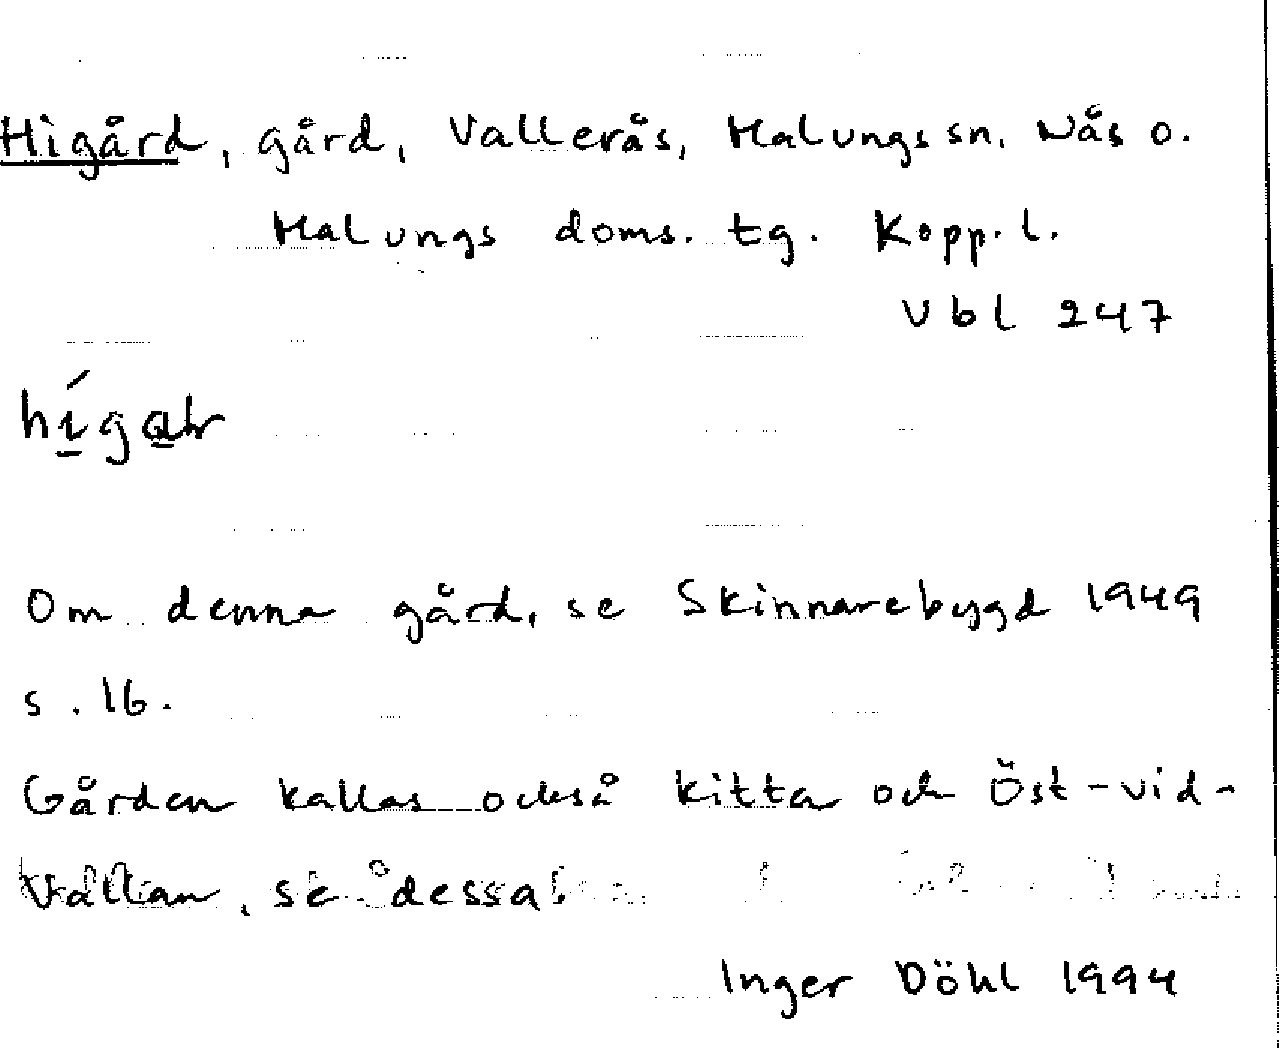 Higård, gård, Vallerås, Malungs sn. Nås o.
Malungs doms. tg. Kopp. l.
Vbl 247
hígar
Om denna gård, se Skinnarebygd 1949
s. 16.
Gården kallas också Kitta och Öst-vid-
Vallan, se dessa
Inger Döhl 1994